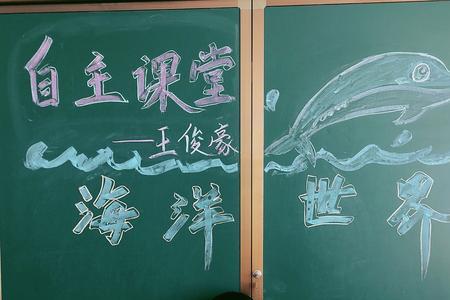 自主课堂
——王俊豪
海洋世界